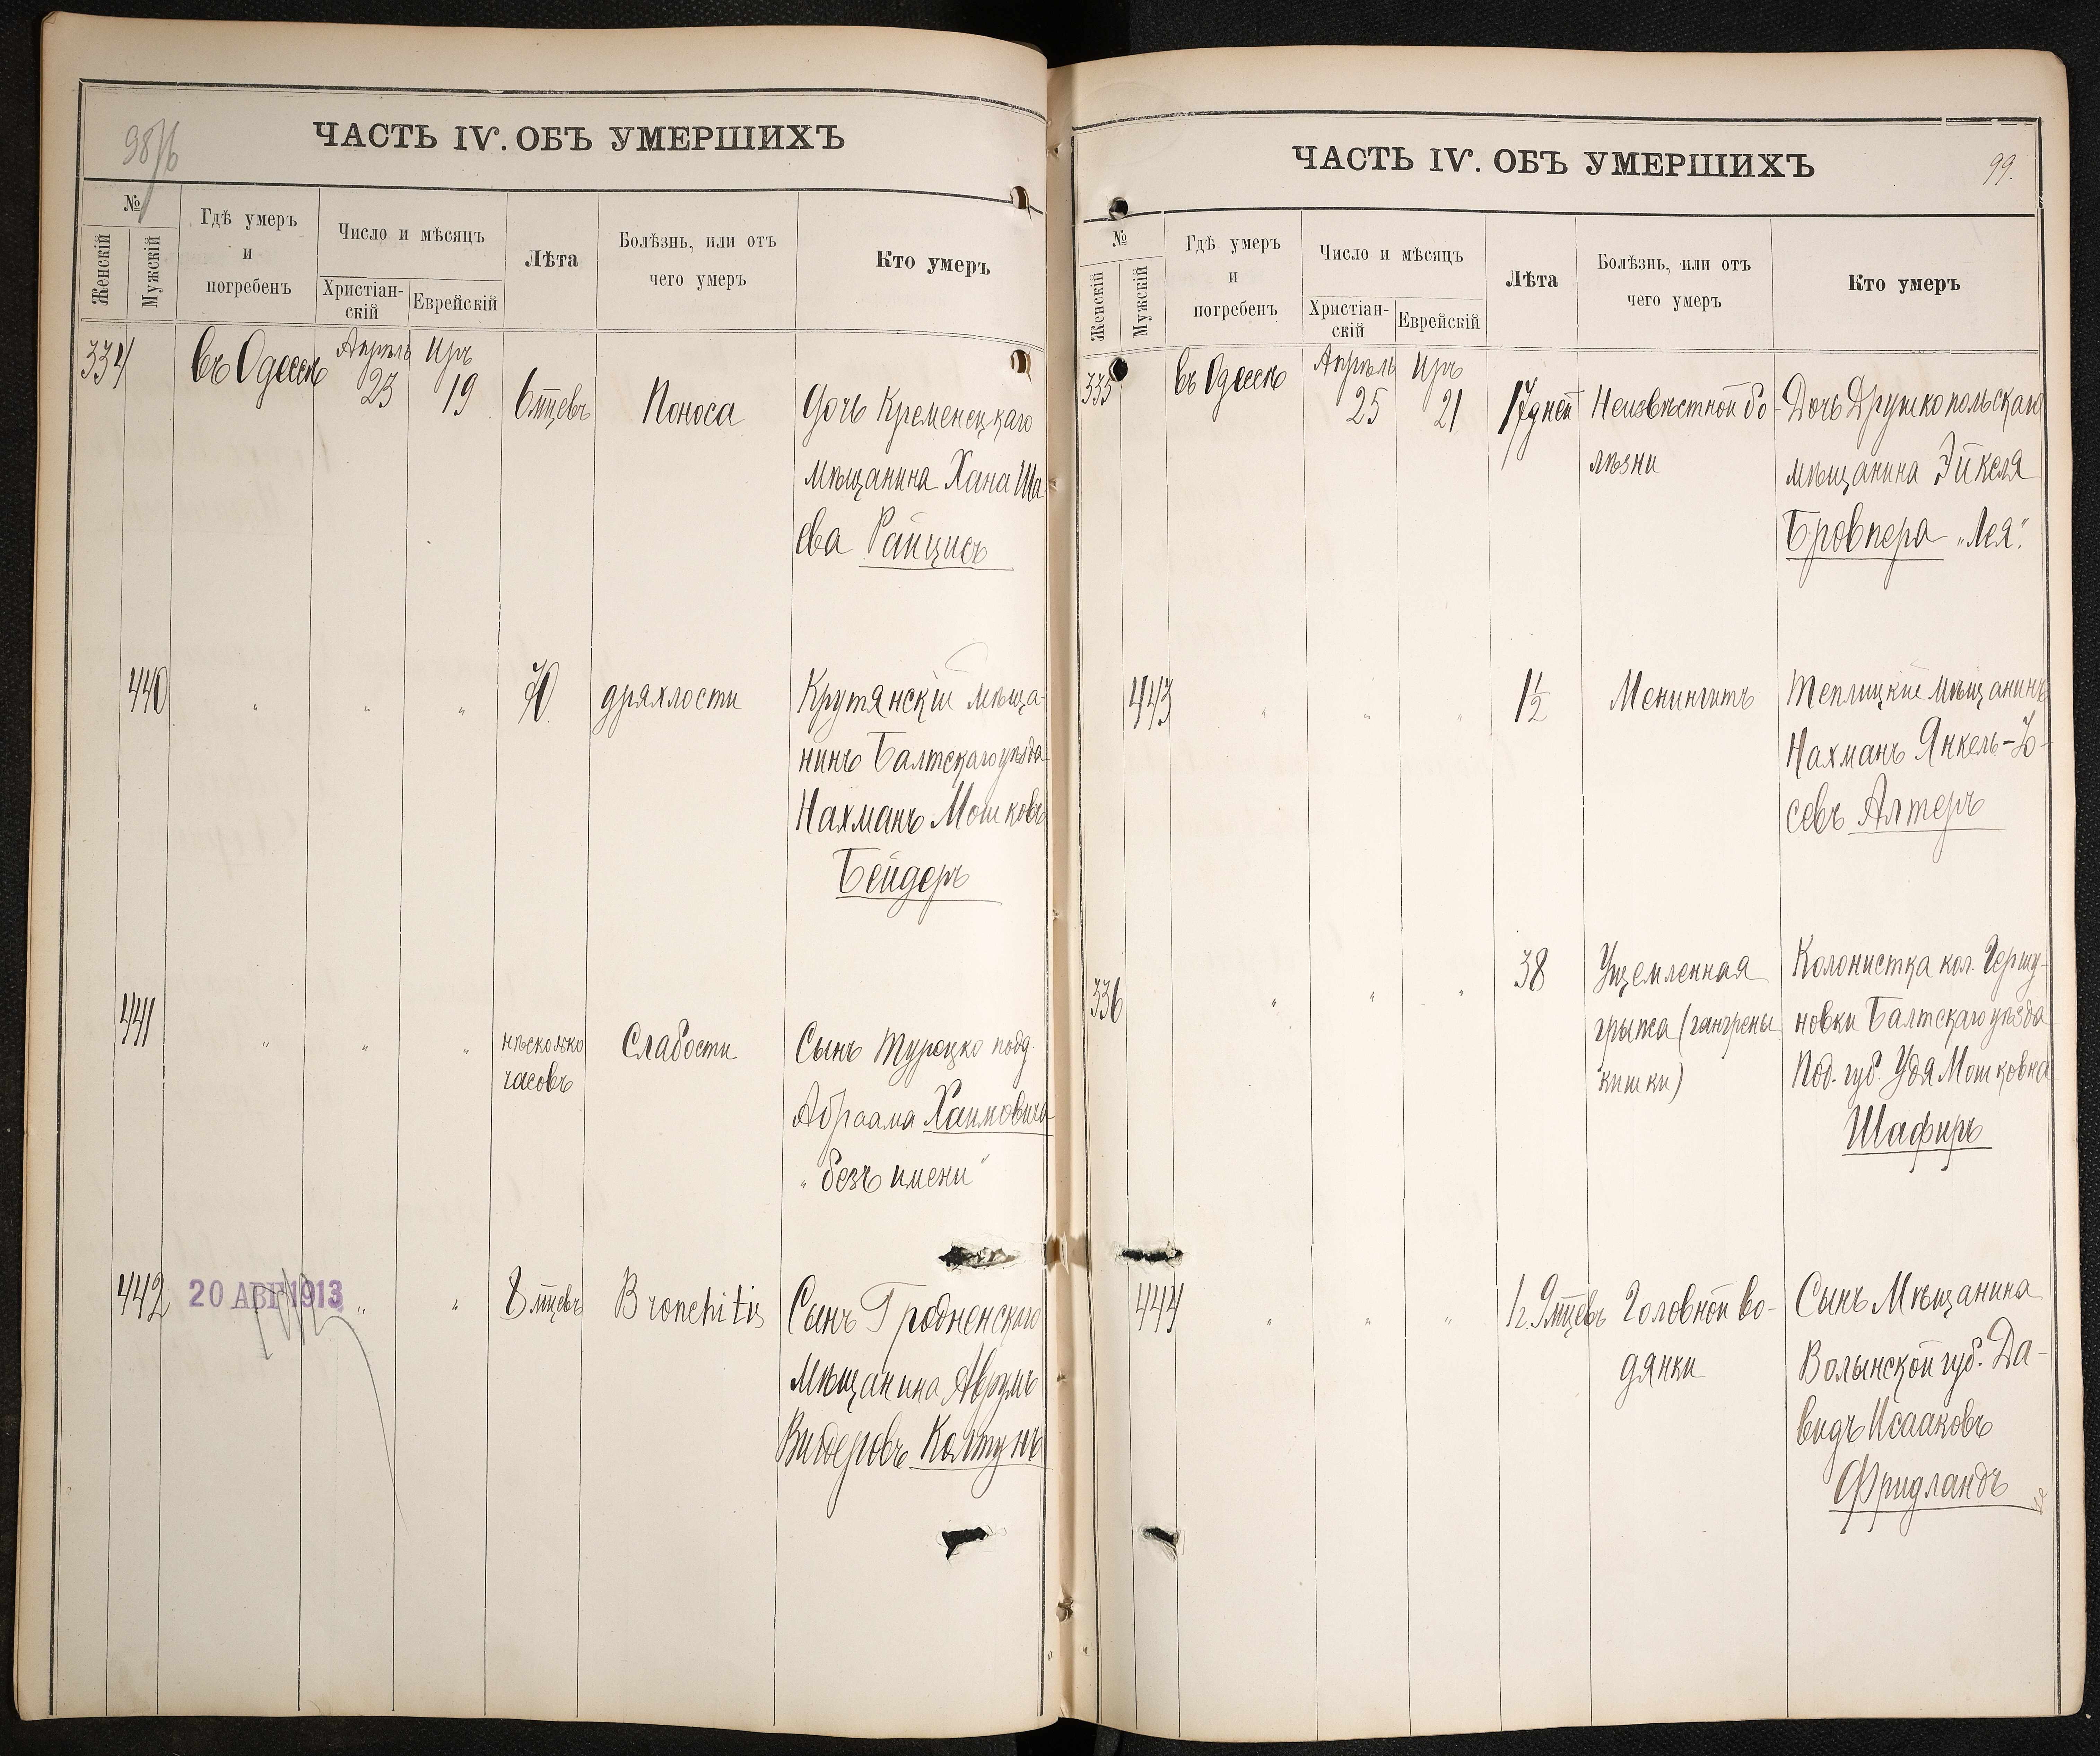 98/б
ЧАСТЬ IV. ОБЪ УМЕРШИХЪ
№
Женскій
Мужскій
Гдѣ умеръ
и
погребенъ
Число и мѣсяцъ
Христіан-
скій
Еврейскій
Лѣта
Болѣзнь, или отъ
чего умеръ
Кто умеръ
334
въ Одессѣ
Апрѣль
23
Иръ
19
6 мцевъ
Поноса
Дочь Кременецкаго
мѣщанина Хана Ша-
ева Райцисъ
440
" " "
70
дряхлости
Крутянскій мѣща-
нинъ Балтскаго уѣзда
Нахманъ Мошковъ
Бейдеръ
441
" " "
нѣсколько
часовъ
Слабости
Сынъ Турецко подд.
Абраама Хаимовича
"безъ имени"
442
20 АВГ 1913
" "
8 мцевъ
Bronchitis
Сынъ Гродненскаго
мѣщанина Аврумъ
Колтунъ
99.
ЧАСТЬ IV. ОБЪ УМЕРШИХЪ
№
Женскій
Мужскій
Гдѣ умеръ
и
погребенъ
Число и мѣсяцъ
Христіан-
скій
Еврейскій
Лѣта
Болѣзнь, или отъ
чего умеръ
Кто умеръ
335
въ Одессѣ
Апрѣль
25
Иръ
21
17 дней
Неизвѣстной бо-
лѣзни
Дочь Дружкопольскаго
мѣщанина Эйкеля
Бровпера "Лея."
443
" " "
1½
Менингитъ
Теплицкій мѣщанинъ
Нахманъ Янкель-Іо-
севъ Алтеръ
336
" " "
38
Ущемленная
грыжа (гангрены
кишки)
Колонистка кол. Гершу-
новки Балтскаго уѣзда
Под. губ. Удя Мошковна
Шафиръ
444
" " "
1 г. 9 мцевъ
Головной во-
дянки
Сынъ мѣщанина
Волынской губ. Да-
видъ Исааковъ
Фридландъ